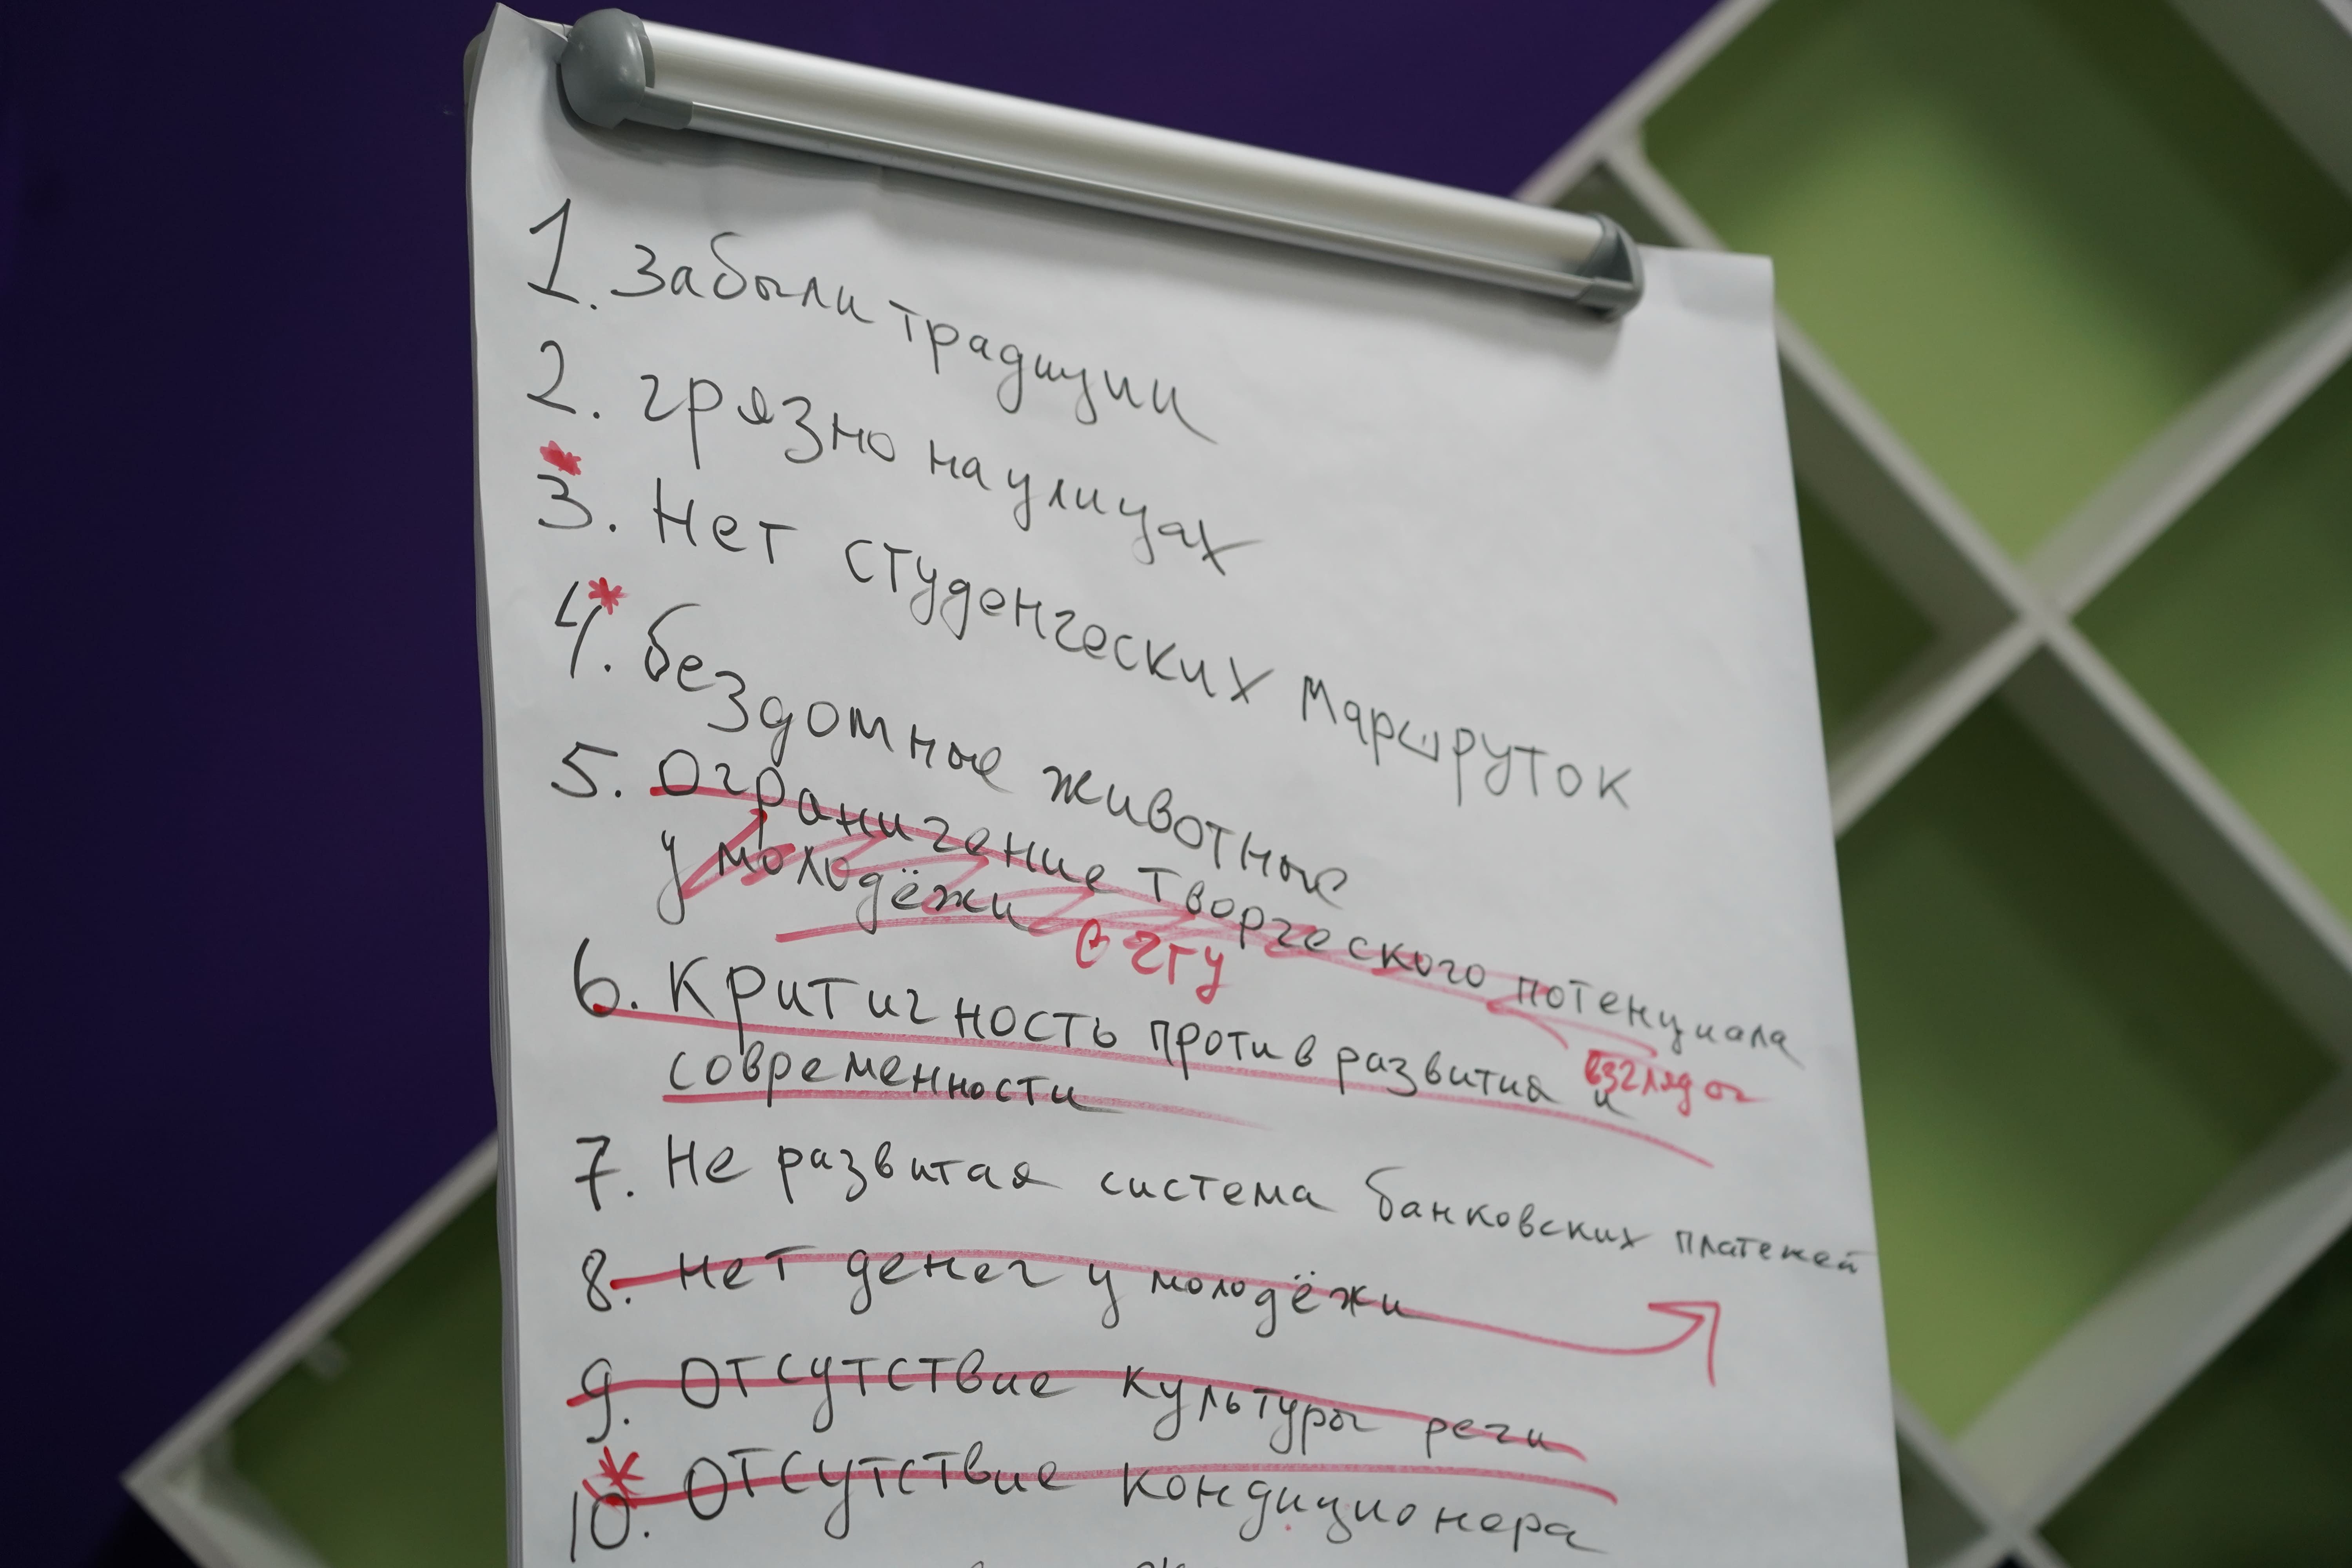 1. Забыли традиции
2. грязно на улицах
* 3. Нет студенческих маршруток
4*. бездомные животные
5. Ограничение творческого потенциала
у молодёжи
в ЧГУ
взгляды
6. Критичность против развития и
современности
7. Не развитая система банковских платежей
8. нет денег у молодёжи
9. Отсутствие культуры речи
* 10. Отсутствие кондиционера